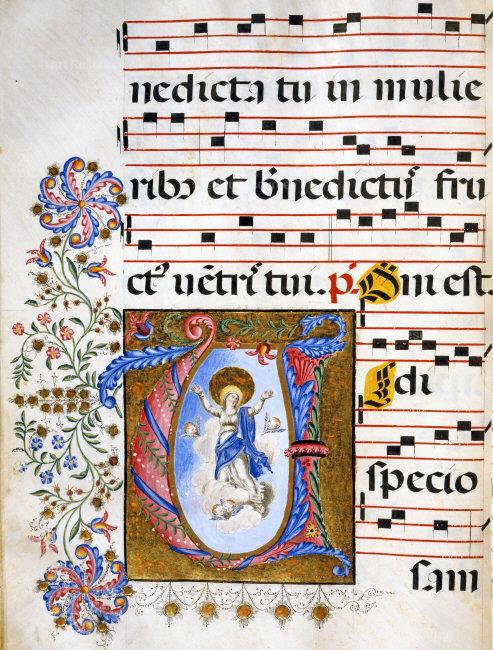 nedicta tu in mulie
ribꝰ et b̄nedictꝰ fru
ctꝰ vētrꝭ tui. p̄. Dn̄i est.
VIdi
specio
sam